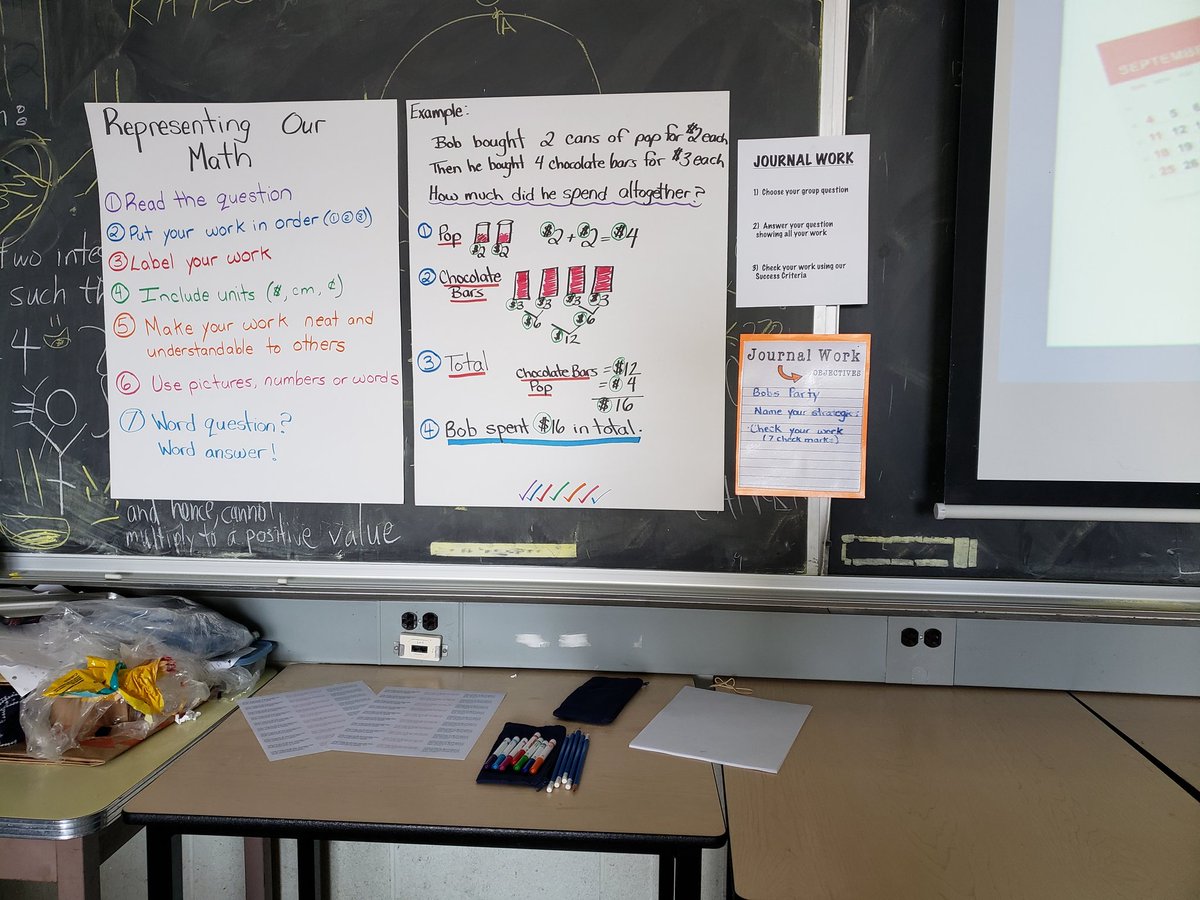 Representing Our
Math
① Read the question
② Put your work in order (①②③)
③ Label your work
④ Include units ($, cm, ¢)
⑤ Make your work neat and
understandable to others
⑥ Use pictures, numbers or words
⑦ Word question?
Word answer!
Example:
Bob bought 2 cans of pop for $2 each
Then he bought 4 chocolate bars for $3 each
How much did he spend altogether?
① Pop
$2 $2
$2 + $2 = $4
② Chocolate
Bars
$3 $3 $3 $3
$6 $6
$12
③ Total
Chocolate Bars = $12
Pop = $4
$16
④ Bob spent $16 in total.
JOURNAL WORK
1) Choose your group question
2) Answer your question
showing all your work
3) Check your work using our
Success Criteria
Journal Work
OBJECTIVES
Bobs Party
Name your strategies
Check your work
(7 check marks)
SEPTEMBER
A
two
such
4
and hence, cannot
multiply to a positive value